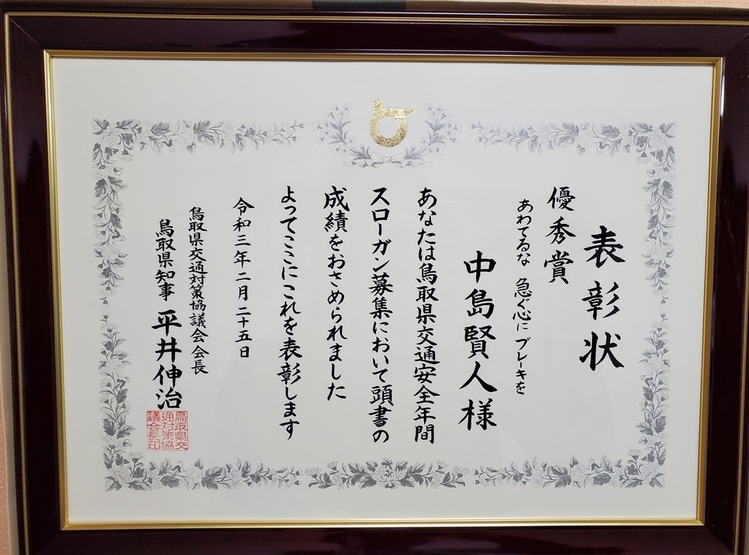 表彰状
優秀賞
あわてるな 急ぐ心に ブレーキを
中島賢人様
あなたは鳥取県交通安全年間
スローガン募集において頭書の
成績をおさめられました
よってここにこれを表彰します
令和三年二月二十五日
鳥取県交通対策協議会会長
鳥取県知事 平井伸治
鳥取県交
通対策協
議会長印